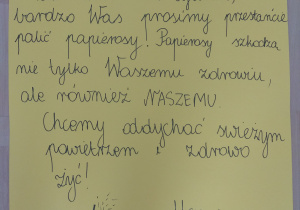 bardzo Was prosimy przestańcie
palić papierosy! Papierosy szkodzą
nie tylko Waszemu zdrowiu,
ale również NASZEMU.
Chcemy oddychać świeżym
powietrzem i zdrowo
żyć!